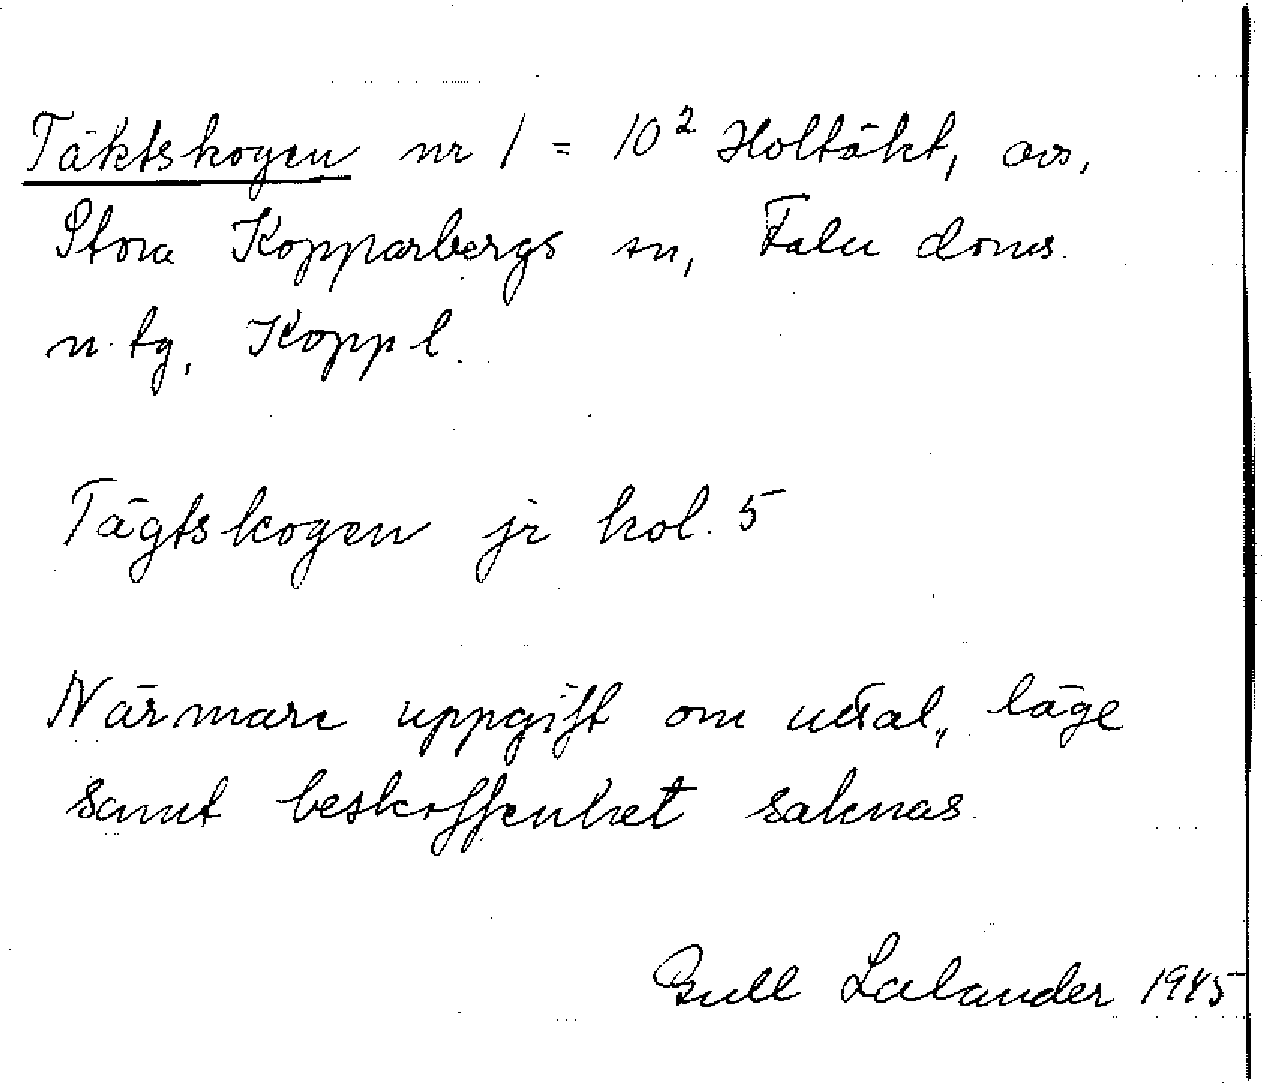 Täktskogen nr 1 = 10² Holtäkt, avs.
Stora Kopparbergs sn, Falu doms.
n. tg, Koppl.
Tägtskogen jr kol. 5
Närmare uppgift om uttal, läge
samt beskaffenhet saknas.
Gull Lalander 1945